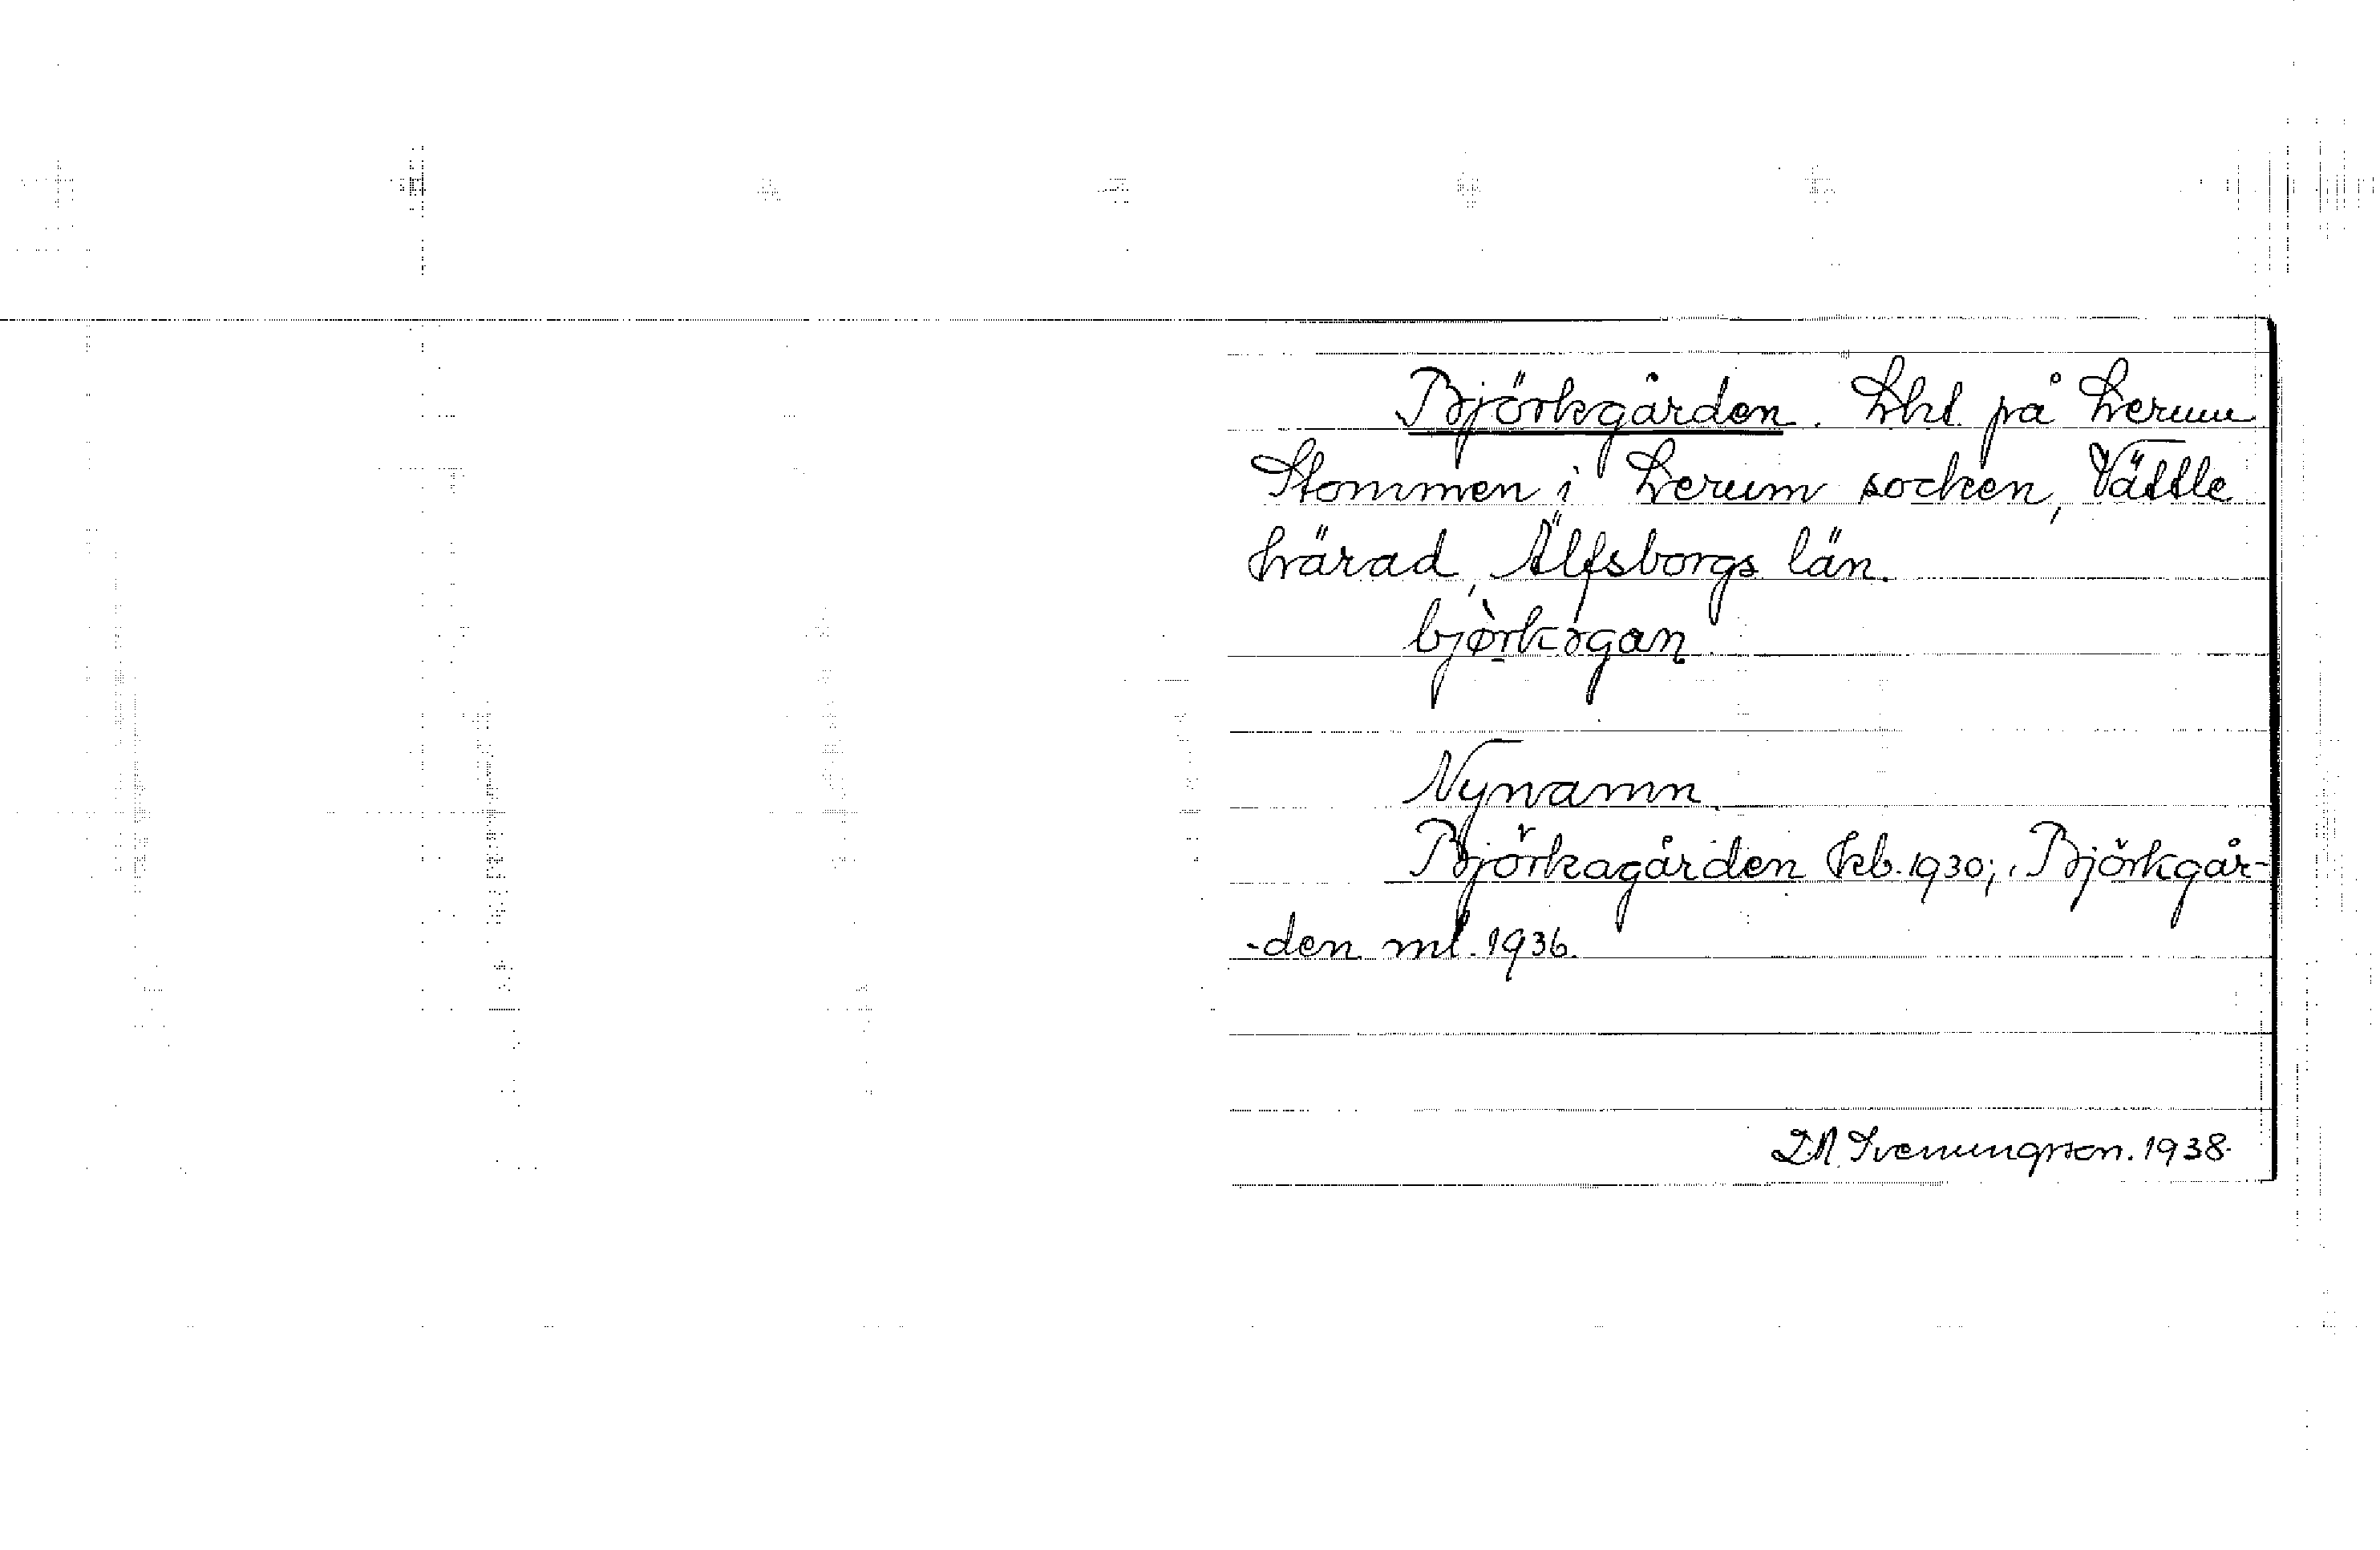 Björkgården. Lht på Lerum
Stommen i Lerum socken, Vättle
härad, Älfsborgs län.
bjørkogan
Nynamn.
Björkagården kb. 1930; Björkgår-
-den ml. 1936.
D.A. Svenungson. 1938.